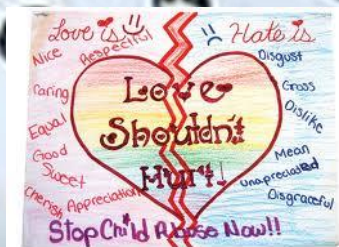 Love is
Hate is
Nice
Respectful
Caring
Equal
Good
Sweet
Cherish
Appreciation
Love
Shouldn't
Hurt!
Disgust
Gross
Dislike
Mean
unapreciated
Disgraceful
Stop Child Abuse Now!!